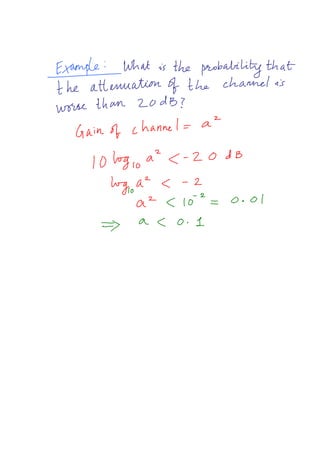 Example: What is the probability that
the attenuation of the channel is
worse than 20dB?
Gain of channel = a²
10 log₁₀ a² < -20 dB
log₁₀ a² < -2
a² < 10⁻² = 0.01
⇒ a < 0.1